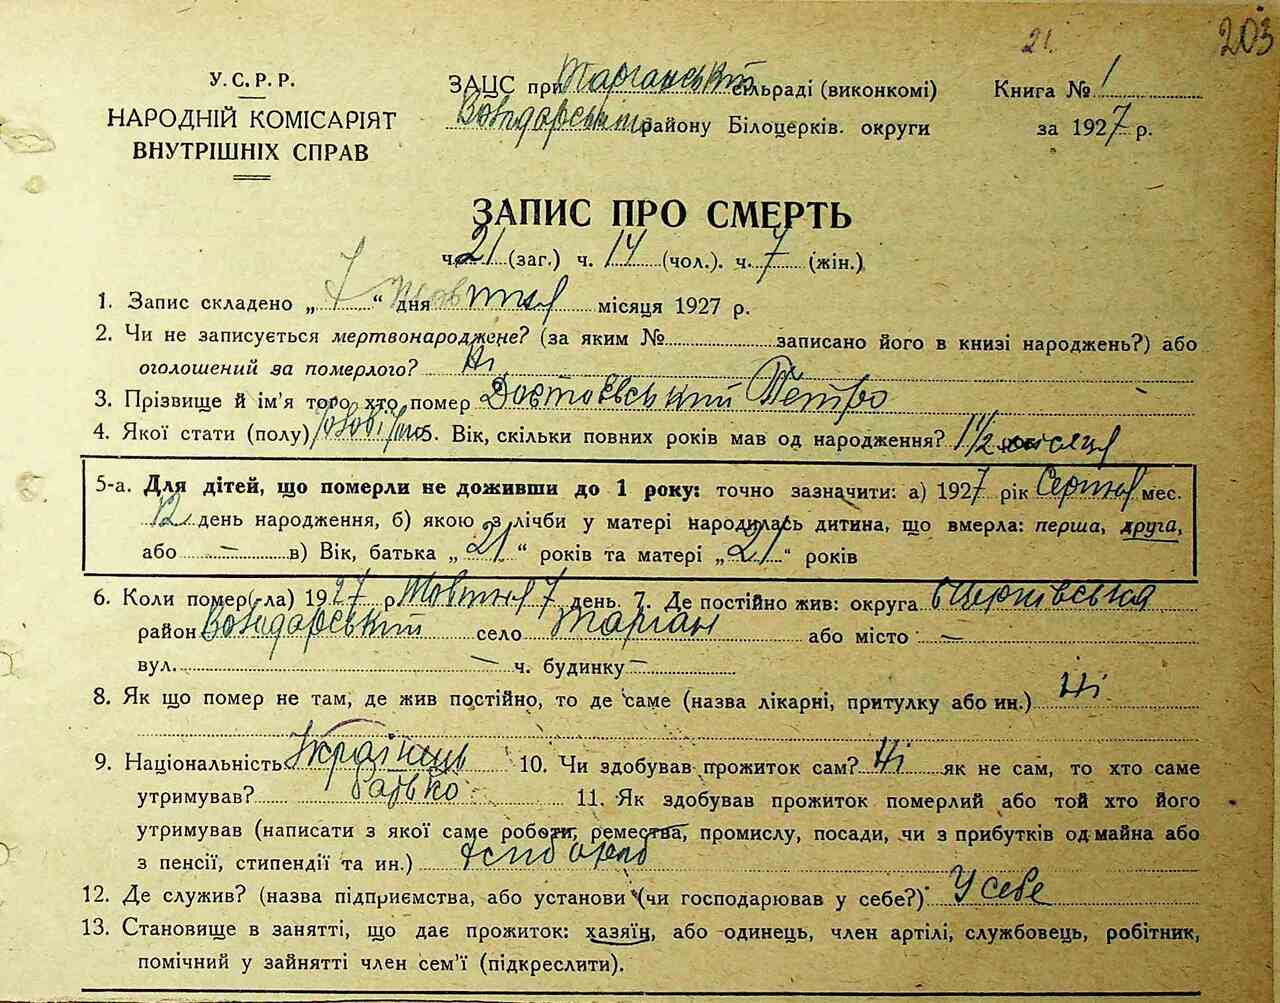 21. 203
У.С.Р.Р.
НАРОДНІЙ КОМІСАРІЯТ
ВНУТРІШНІХ СПРАВ
ЗАЦС при Тарганський сільраді (виконкомі)
Володарський району Білоцерків. округи
Книга № 1
за 1927 р.
ЗАПИС ПРО СМЕРТЬ
ч. 21 (заг.) ч. 14 (чол.). ч. 7 (жін.)
1. Запис складено „ 7 “ дня Жовтня місяця 1927 р.
2. Чи не записується мертвонароджене? (за яким № записано його в книзі народжень?) або
оголошений за померлого? Ні
3. Прізвище й ім'я того хто помер Достоєвський Петро
4. Якої стати (полу) 5. Вік, скільки повних років мав од народження? 1 1/2 місяця
5-а. Для дітей, що померли не доживши до 1 року: точно зазначити: а) 1927 рік Серпня мес.
12 день народження, б) якою з лічби у матері народилась дитина, що вмерла: перша, друга,
або — в) Вік, батька „ 21 “ років та матері „ 21 “ років
6. Коли помер(-ла) 1927 р. Жовтня 7 день. 7. Де постійно жив: округа Б Церківська
район Володарський село Тарган або місто —
вул. — ч. будинку —
8. Як що помер не там, де жив постійно, то де саме (назва лікарні, притулку або ин.) Ні
9. Національність Українець 10. Чи здобував прожиток сам? Ні як не сам, то хто саме
утримував? батько 11. Як здобував прожиток померлий або той хто його
утримував (написати з якої саме роботи, ремества, промислу, посади, чи з прибутків од майна або
з пенсії, стипендії та ин.) хлібороб
12. Де служив? (назва підприємства, або установи (чи господарював у себе?) У себе
13. Становище в занятті, що дає прожиток: хазяїн, або одинець, член артілі, службовець, робітник,
помічний у зайнятті член сем'ї (підкреслити).